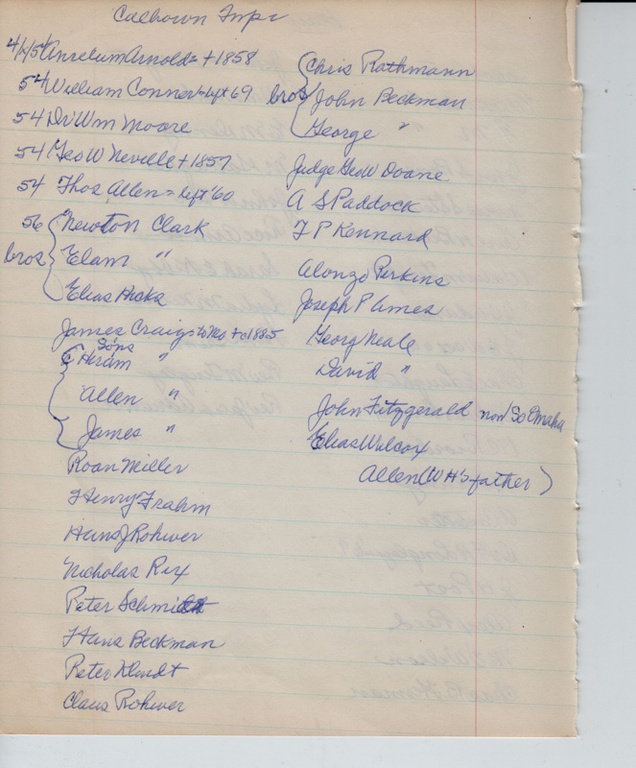 Calhoun Impr
4/1/54 Anselum Arnold = +1858
54 William Conner = left 69
54 Dr Wm Moore
54 Geo W Neville + 1857
54 Thos Allen = left '60
56 Newton Clark
bros Elam "
Elias Hicks
James Craig to Mo + c1885
Sons
Hiram "
Allen "
James "
Roan Miller
Henry Frahm
Hans J Rohwer
Nicholas Rix
Peter Schmidt
Hans Beckman
Peter Klindt
Claus Rohwer
Chris Rathmann
bros John Beckman
George "
Judge Geo W Doane
A S Paddock
T P Kennard
Alonzo Perkins
Joseph P Ames
Georg Neale
David "
John Fitzgerald now So Omaha
Elias Wilcox
Allen (WH's father)